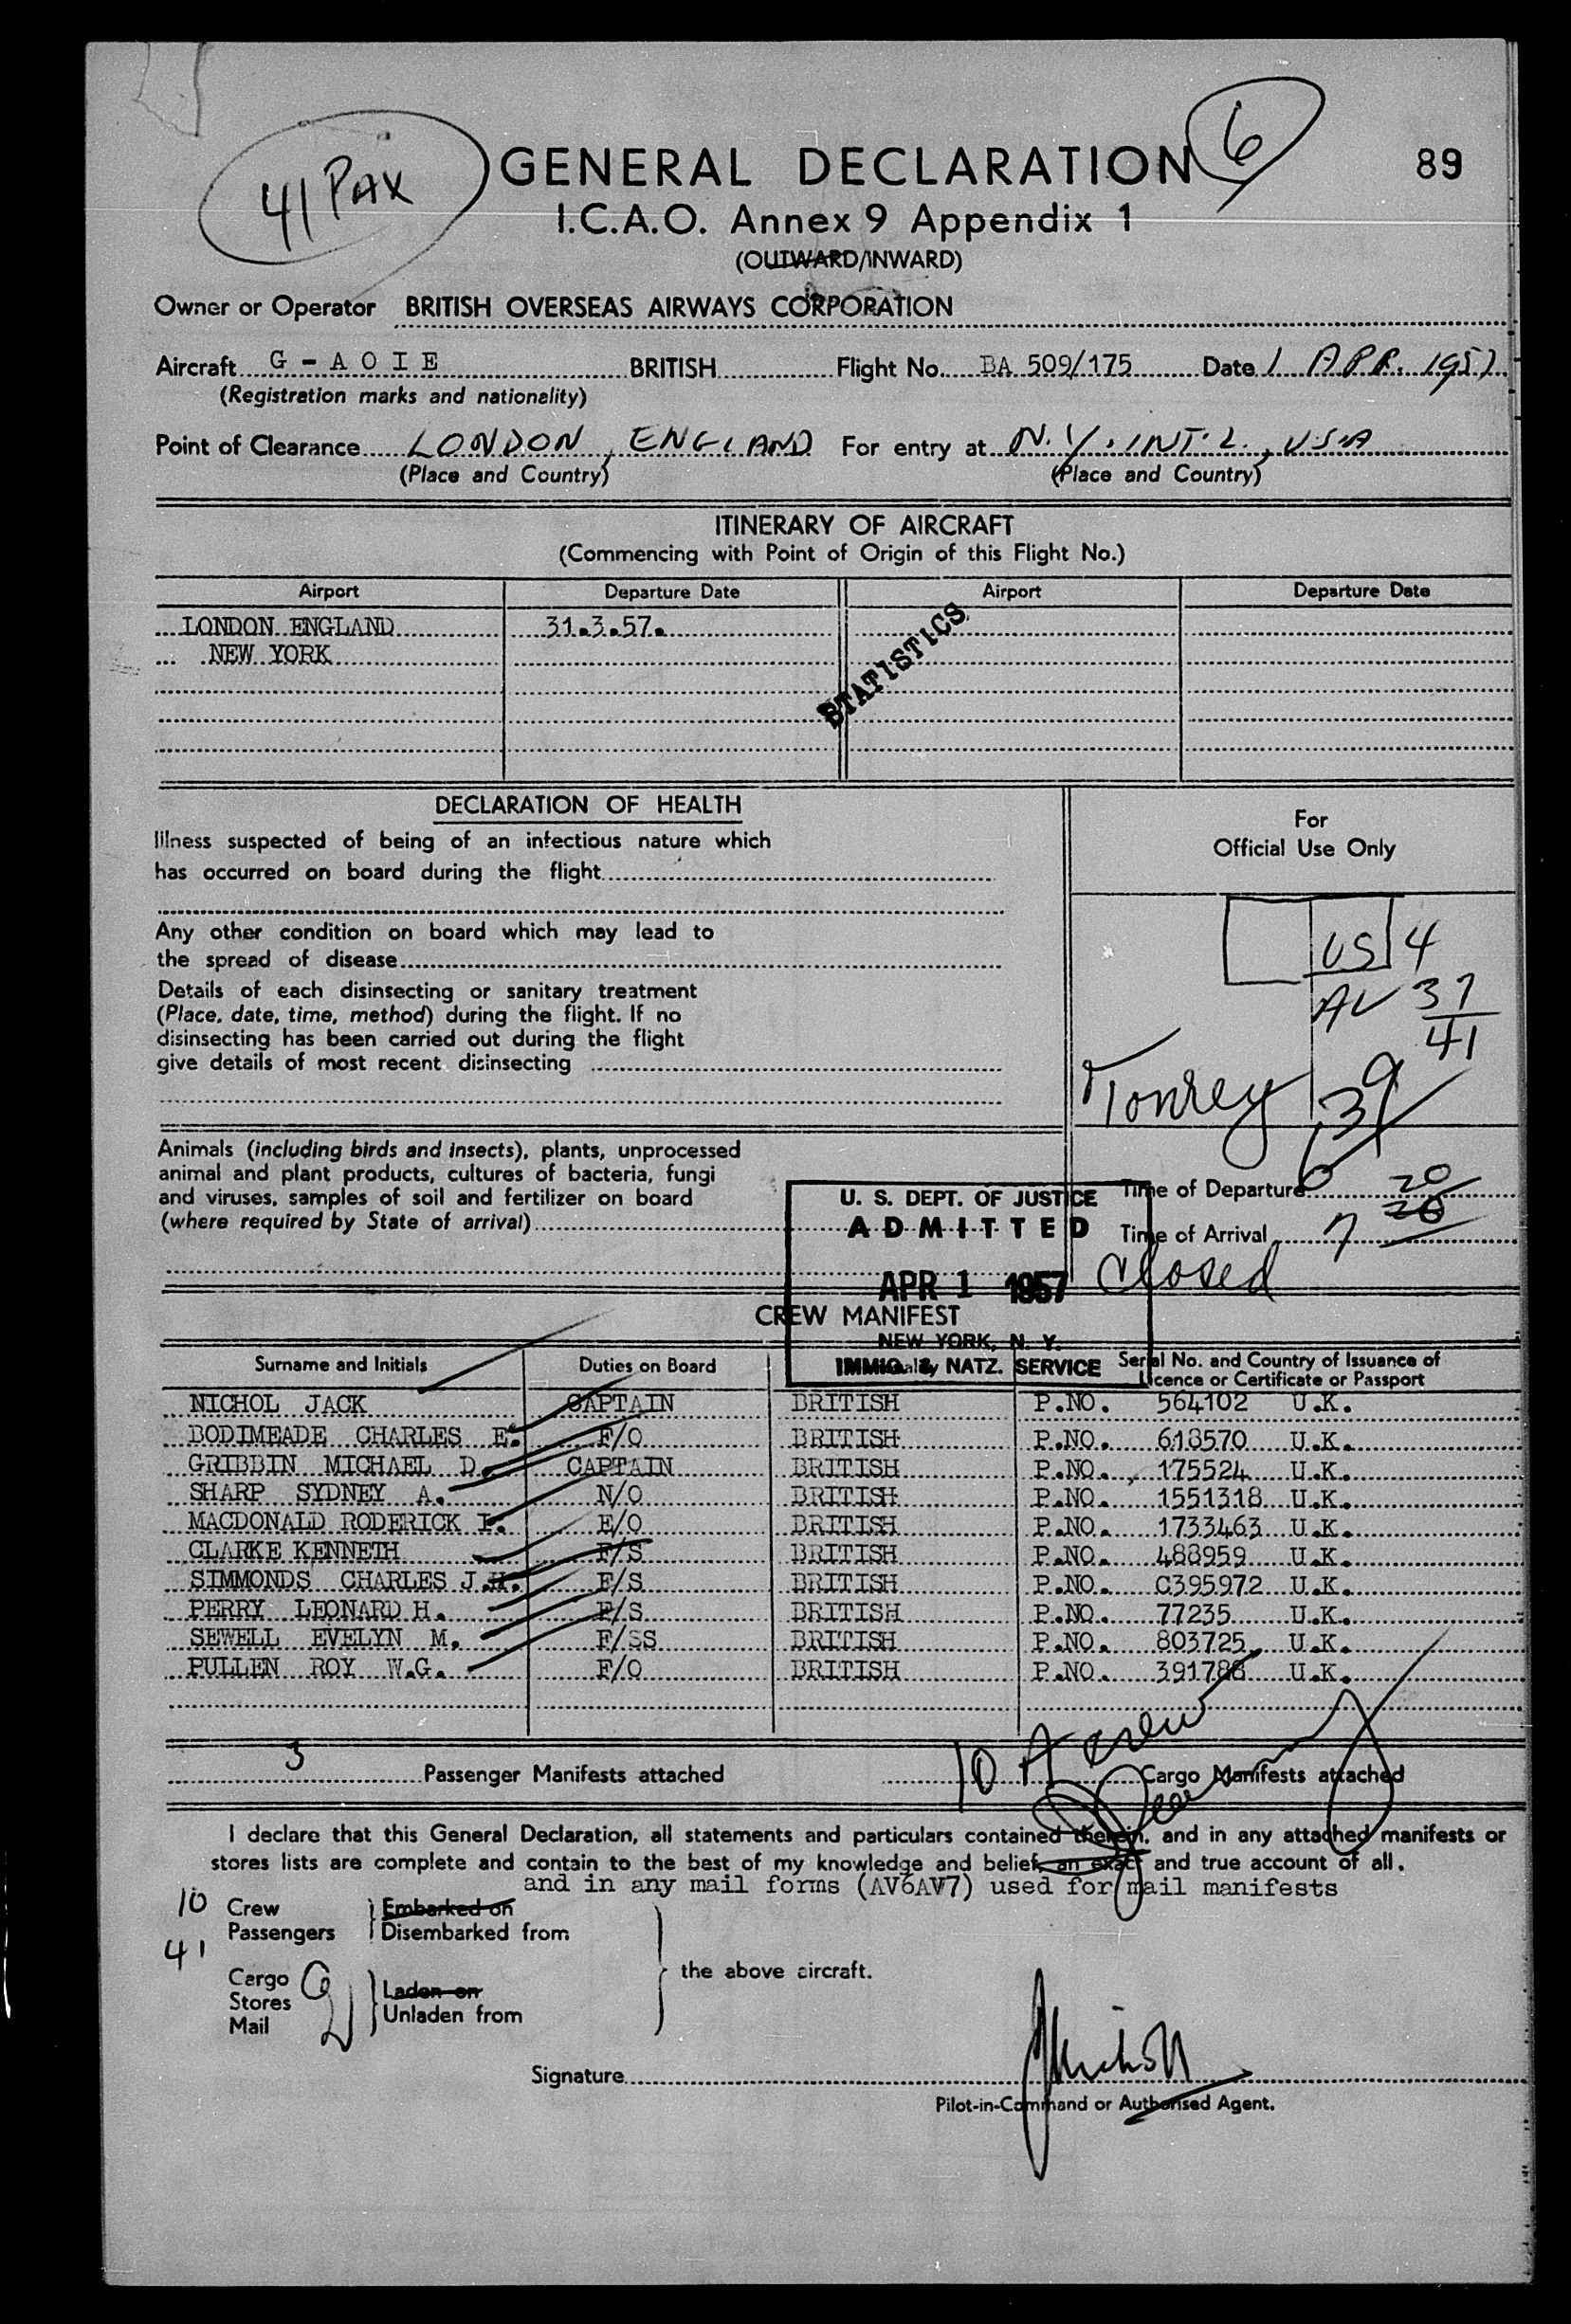 41 PAX
GENERAL DECLARATION
6
89
I.C.A.O. Annex 9 Appendix 1
(OUTWARD/INWARD)
Owner or Operator BRITISH OVERSEAS AIRWAYS CORPORATION
Aircraft G - A O I E BRITISH Flight No. BA 509/175 Date 1 APR. 1957
(Registration marks and nationality)
Point of Clearance LONDON, ENGLAND For entry at N.Y. INT'L, USA
(Place and Country) (Place and Country)
ITINERARY OF AIRCRAFT
(Commencing with Point of Origin of this Flight No.)
Airport Departure Date Airport Departure Date
LONDON ENGLAND 31.3.57.
NEW YORK
STATISTICS
DECLARATION OF HEALTH
Illness suspected of being of an infectious nature which
has occurred on board during the flight
Any other condition on board which may lead to
the spread of disease
Details of each disinsecting or sanitary treatment
(Place, date, time, method) during the flight. If no
disinsecting has been carried out during the flight
give details of most recent disinsecting
For
Official Use Only
US 4
AV 37
41
39
Animals (including birds and insects), plants, unprocessed
animal and plant products, cultures of bacteria, fungi
and viruses, samples of soil and fertilizer on board
(where required by State of arrival)
Time of Departure
20
Time of Arrival 7
Closed
U. S. DEPT. OF JUSTICE
ADMITTED
APR 1 1957
NEW YORK, N. Y.
IMMIG. & NATZ. SERVICE
CREW MANIFEST
Surname and Initials Duties on Board Serial No. and Country of Issuance of
Licence or Certificate or Passport
NICHOL JACK CAPTAIN BRITISH P.NO. 564102 U.K.
BODIMEADE CHARLES E. F/O BRITISH P.NO. 618570 U.K.
GRIBBIN MICHAEL D. CAPTAIN BRITISH P.NO. 175524 U.K.
SHARP SYDNEY A. N/O BRITISH P.NO. 1551318 U.K.
MACDONALD RODERICK I. E/O BRITISH P.NO. 1733463 U.K.
CLARKE KENNETH F/S BRITISH P.NO. 488959 U.K.
SIMMONDS CHARLES J.H. F/S BRITISH P.NO. C395972 U.K.
PERRY LEONARD H. F/S BRITISH P.NO. 77235 U.K.
SEWELL EVELYN M. F/SS BRITISH P.NO. 803725 U.K.
PULLEN ROY W.G. F/O BRITISH P.NO. 391788 U.K.
3 Passenger Manifests attached 10 A crew Cargo Manifests attached
I declare that this General Declaration, all statements and particulars contained therein, and in any attached manifests or
stores lists are complete and contain to the best of my knowledge and belief, an exact and true account of all.
and in any mail forms (AV6AV7) used for mail manifests
10 Crew Embarked on
41 Passengers Disembarked from
the above aircraft.
Cargo
Stores Laden on
Mail Unladen from
Signature
Pilot-in-Command or Authorised Agent.